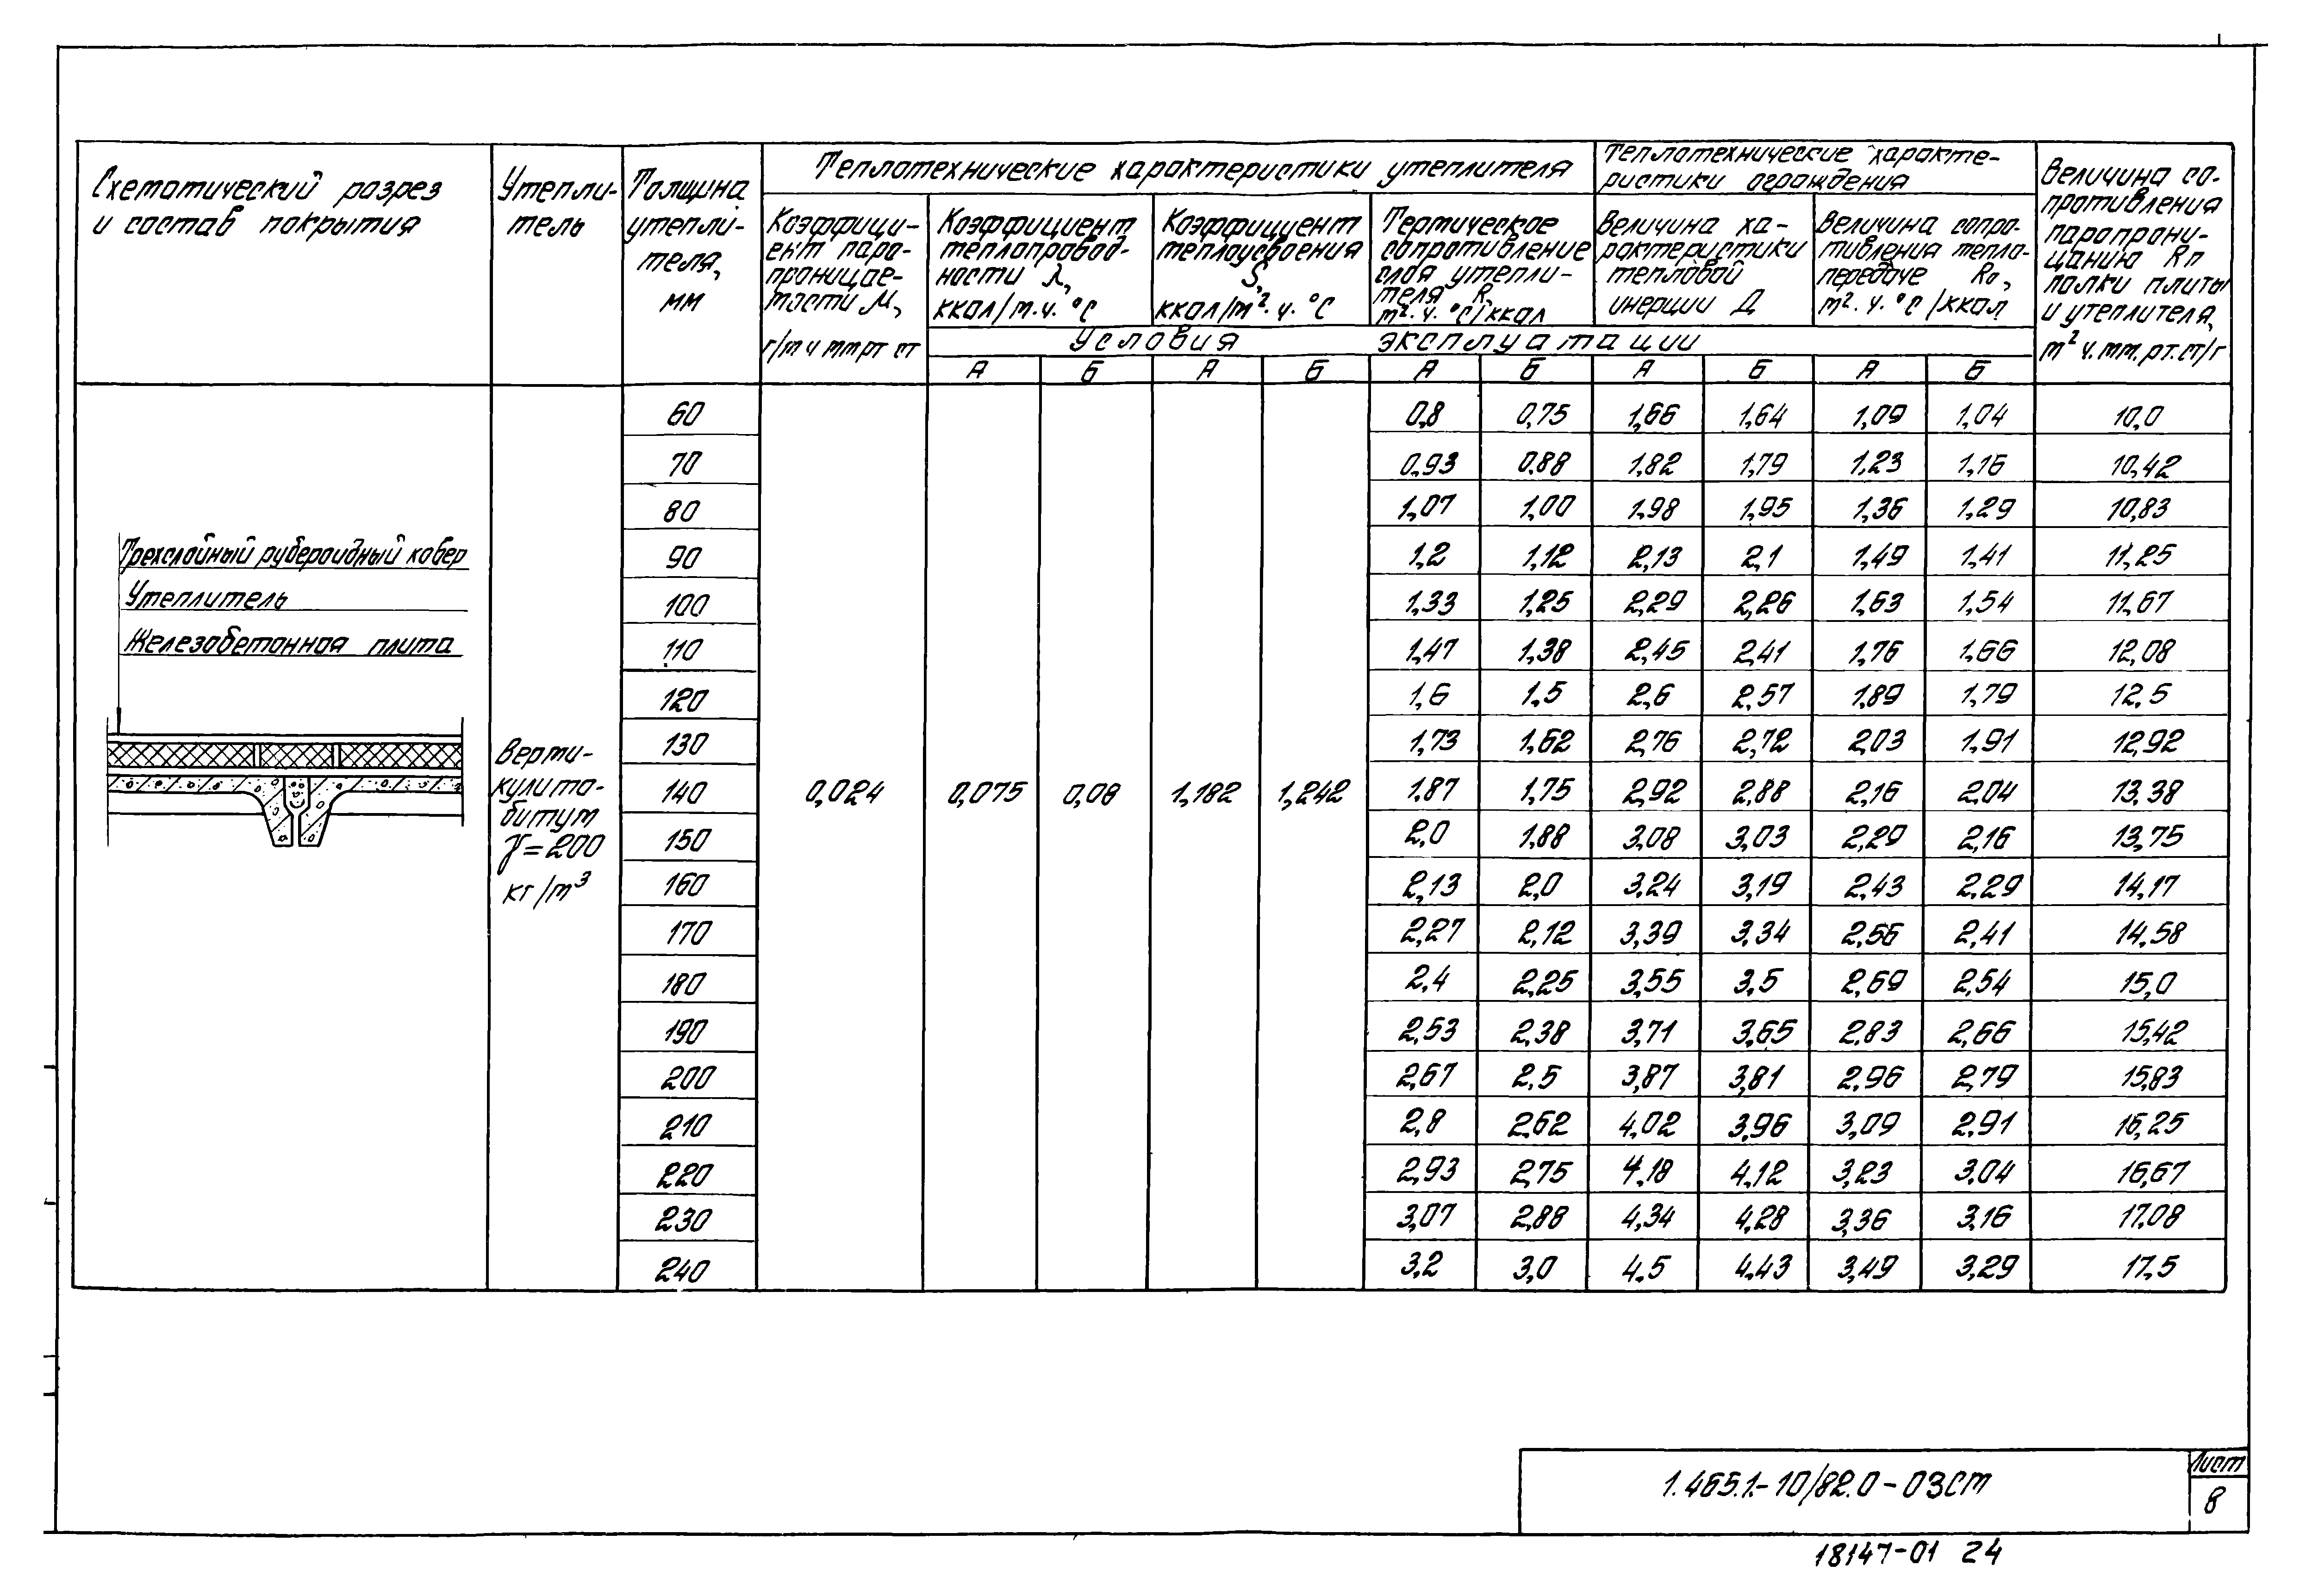 Схематический разрез
и состав покрытия
Утепли-
тель
Толщина
утепли-
теля,
мм
Теплотехнические характеристики утеплителя
Коэффици-
ент паро-
проницае-
мости М,
г/м ч мм рт ст
Коэффициент
теплопровод-
ности λ,
ккал/м.ч. °С
Коэффициент
теплоусвоения
S,
ккал/м². ч. °С
Термическое
сопротивление
слоя утепли-
теля R,
м². ч. °С/ккал
Теплотехнические характе-
ристики ограждения
Величина ха-
рактеристики
тепловой
инерции Д
Величина сопро-
тивления тепло-
передаче Rо,
м². ч. °С/ккал
Величина со-
противления
паропрони-
цанию Rп
полки плиты
и утеплителя,
м² ч. мм. рт. ст/г
Условия эксплуатации
А Б А Б А Б А Б А Б
Трехслойный рубероидный ковер
Утеплитель
Железобетонная плита
Верми-
кулито-
битум
γ=200
кг/м³
0,024 0,075 0,08 1,182 1,242
60 0,8 0,75 1,66 1,64 1,09 1,04 10,0
70 0,93 0,88 1,82 1,79 1,23 1,16 10,42
80 1,07 1,00 1,98 1,95 1,36 1,29 10,83
90 1,2 1,12 2,13 2,1 1,49 1,41 11,25
100 1,33 1,25 2,29 2,26 1,63 1,54 11,67
110 1,47 1,38 2,45 2,41 1,76 1,66 12,08
120 1,6 1,5 2,6 2,57 1,89 1,79 12,5
130 1,73 1,62 2,76 2,72 2,03 1,91 12,92
140 1,87 1,75 2,92 2,88 2,16 2,04 13,38
150 2,0 1,88 3,08 3,03 2,29 2,16 13,75
160 2,13 2,0 3,24 3,19 2,43 2,29 14,17
170 2,27 2,12 3,39 3,34 2,56 2,41 14,58
180 2,4 2,25 3,55 3,5 2,69 2,54 15,0
190 2,53 2,38 3,71 3,65 2,83 2,66 15,42
200 2,67 2,5 3,87 3,81 2,96 2,79 15,83
210 2,8 2,62 4,02 3,96 3,09 2,91 16,25
220 2,93 2,75 4,18 4,12 3,23 3,04 16,67
230 3,07 2,88 4,34 4,28 3,36 3,16 17,08
240 3,2 3,0 4,5 4,43 3,49 3,29 17,5
1.465.1-10/82.0-03СМ
Лист
8
18147-01 24